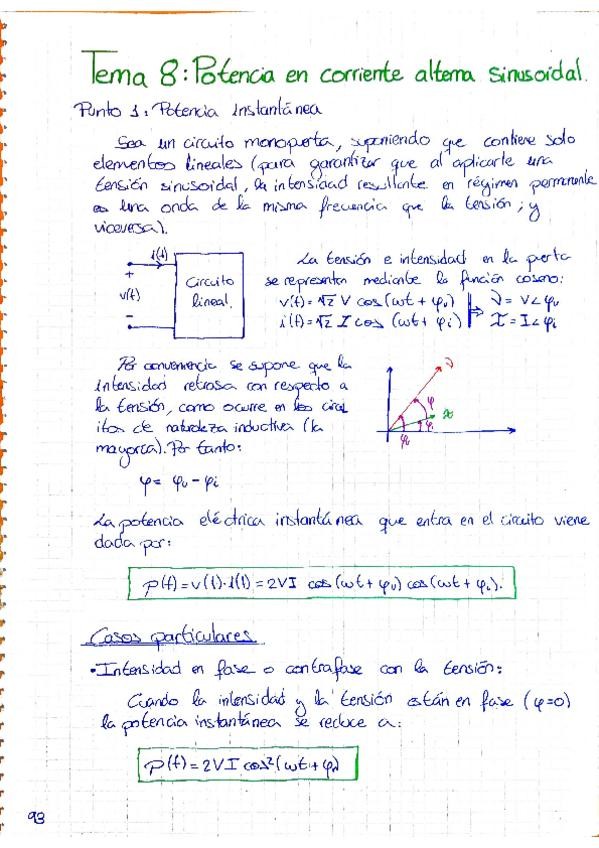 Tema 8: Potencia en corriente alterna sinusoidal.
Punto 1: Potencia Instantánea
Sea un circuito monopuerta, suponiendo que contiene solo
elementos lineales (para garantizar que al aplicarle una
tensión sinusoidal, la intensidad resultante en régimen permanente
es una onda de la misma frecuencia que la tensión; y
viceversa).
i(t)
+
v(t)
-
Circuito
lineal.
La tensión e intensidad en la puerta
se representan mediante la función coseno:
v(t) = √2 V cos (ωt + φv) V = V∠φv
i(t) = √2 I cos (ωt + φi) I = I∠φi
Por conveniencia se supone que la
intensidad retrasa con respecto a
la tensión, como ocurre en los circu
itos de naturaleza inductiva (la
mayoría). Por tanto:
φ = φv - φi
V
φ
I
φi
φv
La potencia eléctrica instantánea que entra en el circuito viene
dada por:
p(t) = v(t)·i(t) = 2VI cos(ωt + φv) cos(ωt + φi).
Casos particulares
• Intensidad en fase o contrafase con la tensión:
Cuando la intensidad y la tensión están en fase (φ=0)
la potencia instantánea se reduce a:
p(t) = 2VI cos²(ωt + φv)
93